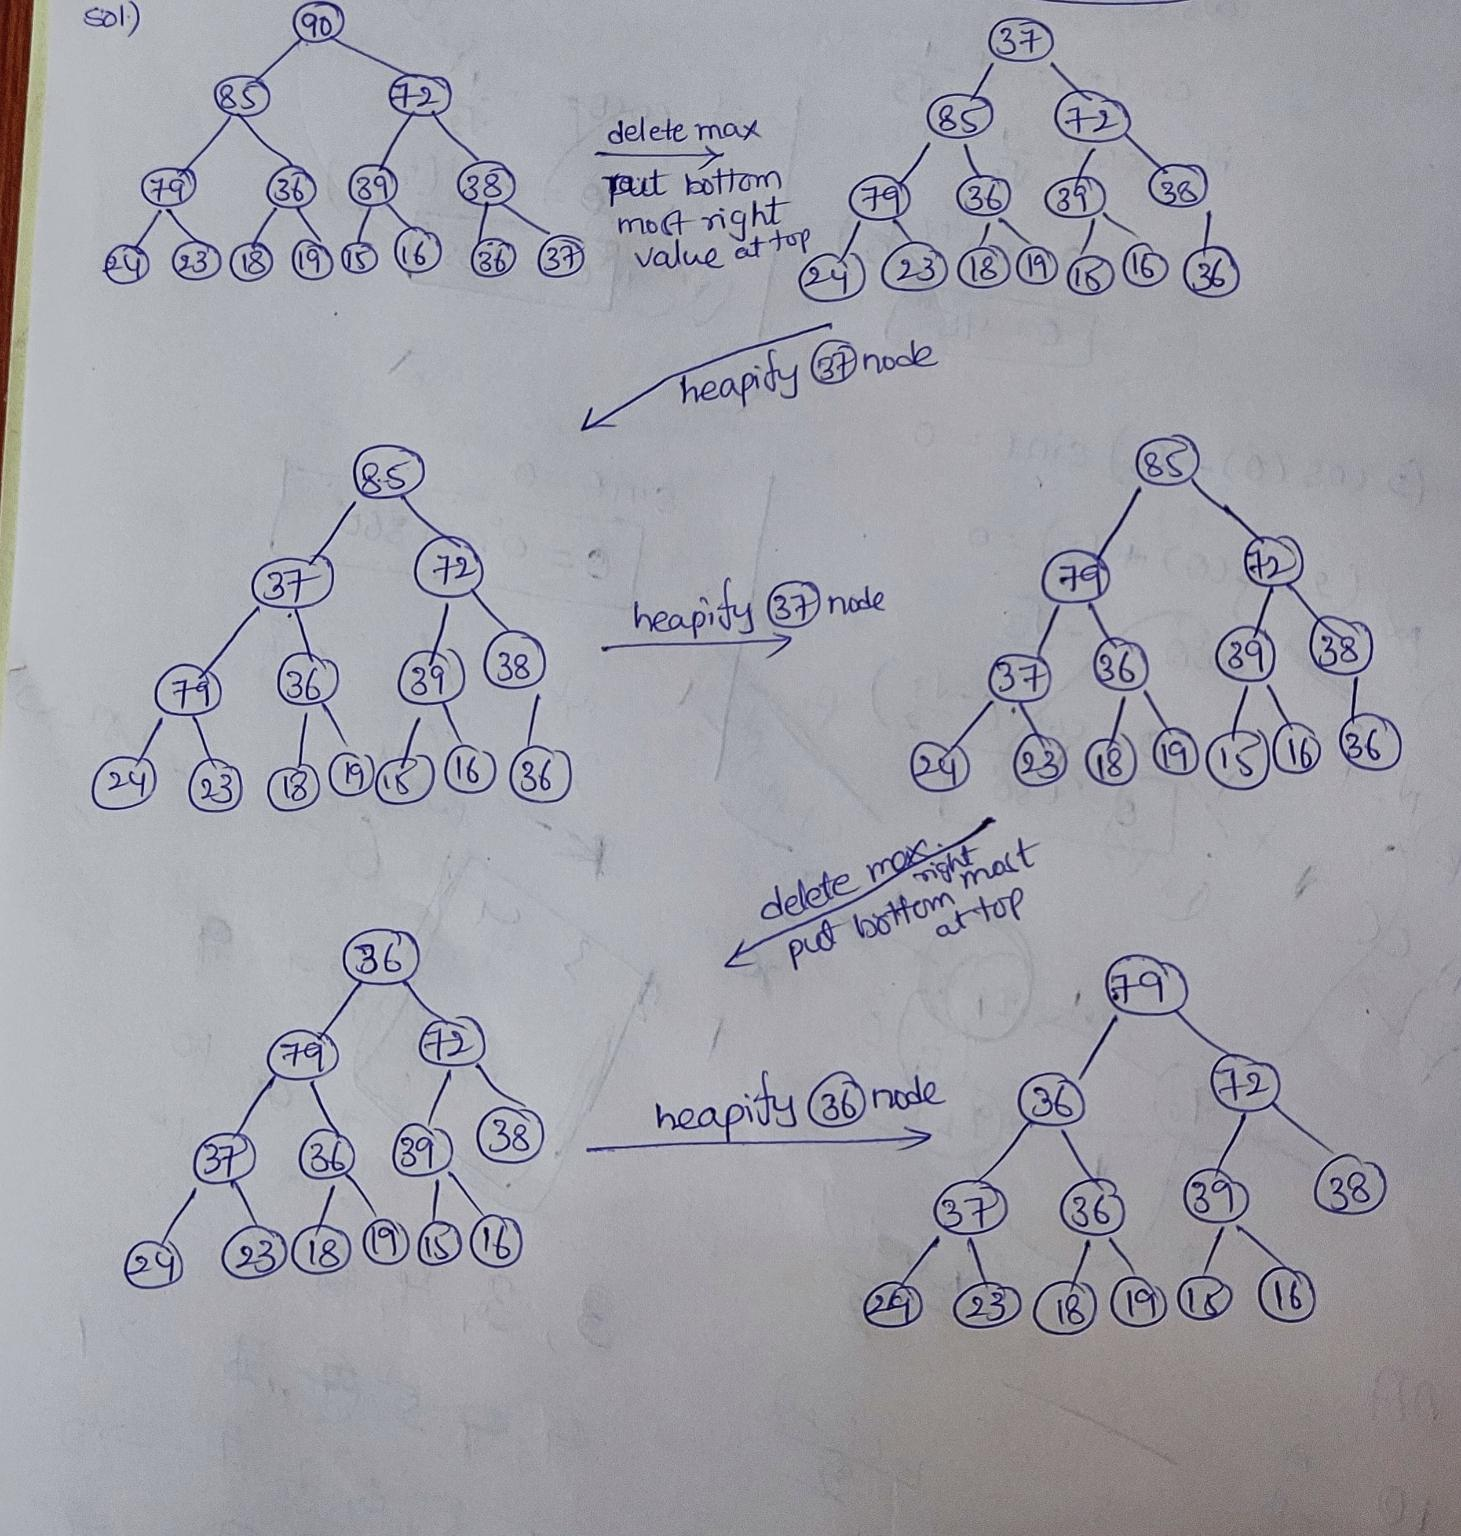 sol:)
90
85 72
79 36 39 38
24 23 18 19 15 16 36 37
delete max
put bottom
most right
value at top
37
85 72
79 36 39 38
24 23 18 19 15 16 36
heapify 37 node
85
37 72
79 36 39 38
24 23 18 19 15 16 36
heapify 37 node
85
79 72
37 36 39 38
24 23 18 19 15 16 36
delete max.
put bottom right most
at top
36
79 72
37 36 39 38
24 23 18 19 15 16
heapify 36 node
79
36 72
37 36 39 38
24 23 18 19 15 16